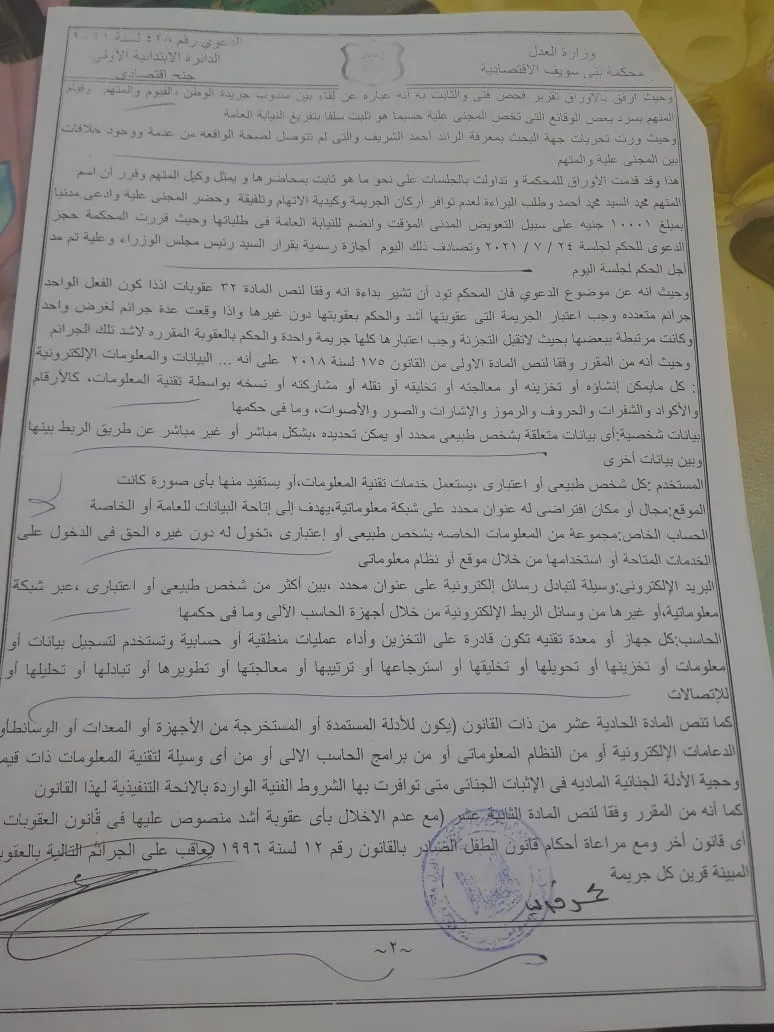 وزارة العدل
محكمة بنى سويف الاقتصادية
الدعوي رقم ٤٢٨ لسنة
الدائرة الابتدائية الاولي
جنح اقتصادي
وحيث ارفق بالاوراق تقرير فحص فنى والثابت به أنه عباره عن لقاء بين مندوب جريدة الوطن بالفيوم والمتهم وقيام
المتهم بسرد بعض الوقائع التى تخص المجنى علية حسبما هو ثابت سلفا بتفريغ النيابة العامة
وحيث ورت تحريات جهة البحث بمعرفة الرائد أحمد الشريف والتى لم تتوصل لصحة الواقعه من عدمة ووجود خلافات
بين المجنى علية والمتهم
هذا وقد قدمت الأوراق للمحكمة و تداولت بالجلسات على نحو ما هو ثابت بمحاضرها و يمثل وكيل المتهم وقرر أن اسم
المتهم محمد السيد محمد أحمد وطلب البراءة لعدم توافر أركان الجريمة وكيدية الاتهام وتلفيقة وحضر المجنى علية وادعى مدنيا
بمبلغ ١٠٠٠١ جنيه على سبيل التعويض المدنى المؤقت وانضم للنيابة العامة فى طلباتها وحيث قررت المحكمة حجز
الدعوى للحكم لجلسة ٢٤ / ٧ / ٢٠٢١ وتصادف ذلك اليوم أجازة رسمية بقرار السيد رئيس مجلس الوزراء وعلية تم مد
أجل الحكم لجلسة اليوم
وحيث انه عن موضوع الدعوي فان المحكم تود أن تشير بداءة انه وفقا لنص المادة ٣٢ عقوبات اذذا كون الفعل الواحد
جرائم متعدده وجب اعتبار الجريمة التى عقوبتها أشد والحكم بعقوبتها دون غيرها واذا وقعت عدة جرائم لغرض واحد
وكانت مرتبطة ببعضها بحيث لاتقبل التجزئة وجب اعتبارها كلها جريمة واحدة والحكم بالعقوبة المقرره لاشد تلك الجرائم
وحيث أنه من المقرر وفقا لنص المادة الاولى من القانون ١٧٥ لسنة ٢٠١٨ على أنه ... البيانات والمعلومات الإلكترونية
: كل مايمكن إنشاؤه أو تخزينه أو معالجته أو تخليقه أو نقله أو مشاركته أو نسخه بواسطة تقنية المعلومات، كالأرقام
والأكواد والشفرات والحروف والرموز والإشارات والصور والأصوات، وما فى حكمها
بيانات شخصية:أى بيانات متعلقة بشخص طبيعي محدد أو يمكن تحديده ،بشكل مباشر أو غير مباشر عن طريق الربط بينها
وبين بيانات أخرى
المستخدم :كل شخص طبيعي أو اعتبارى ،يستعمل خدمات تقنية المعلومات،أو يستفيد منها بأى صورة كانت
الموقع:مجال أو مكان افتراضى له عنوان محدد على شبكة معلوماتية،يهدف إلى إتاحة البيانات للعامة أو الخاصة
الحساب الخاص:مجموعة من المعلومات الخاصه بشخص طبيعي أو إعتبارى ،تخول له دون غيره الحق فى الدخول على
الخدمات المتاحة أو استخدامها من خلال موقع أو نظام معلوماتى
البريد الإلكترونى:وسيلة لتبادل رسائل إلكترونية على عنوان محدد ،بين أكثر من شخص طبيعي أو اعتبارى ،عبر شبكة
معلوماتية،أو غيرها من وسائل الربط الإلكترونية من خلال أجهزة الحاسب الآلى وما فى حكمها
الحاسب:كل جهاز أو معدة تقنيه تكون قادرة على التخزين وأداء عمليات منطقية أو حسابية وتستخدم لتسجيل بيانات أو
معلومات أو تخزينها أو تحويلها أو تخليقها أو استرجاعها أو ترتيبها أو معالجتها أو تطويرها أو تبادلها أو تحليلها أو
للإتصالات
كما تنص المادة الحادية عشر من ذات القانون (يكون للأدلة المستمدة أو المستخرجة من الأجهزة أو المعدات أو الوسائطأو
الدعامات الإلكترونية أو من النظام المعلوماتى أو من برامج الحاسب الالى أو من أى وسيلة لتقنية المعلومات ذات قيم
وحجية الأدلة الجنائية الماديه فى الإثبات الجنائى متى توافرت بها الشروط الفنية الواردة بالائحة التنفيذية لهذا القانون
كما أنه من المقرر وفقا لنص المادة الثانية عشر (مع عدم الاخلال بأى عقوبة أشد منصوص عليها فى قانون العقوبات
أى قانون أخر ومع مراعاة أحكام قانون الطفل الصادر بالقانون رقم ١٢ لسنة ١٩٩٦ يعاقب على الجرائم التالية بالعقو
المبينة قرين كل جريمة
~٢~